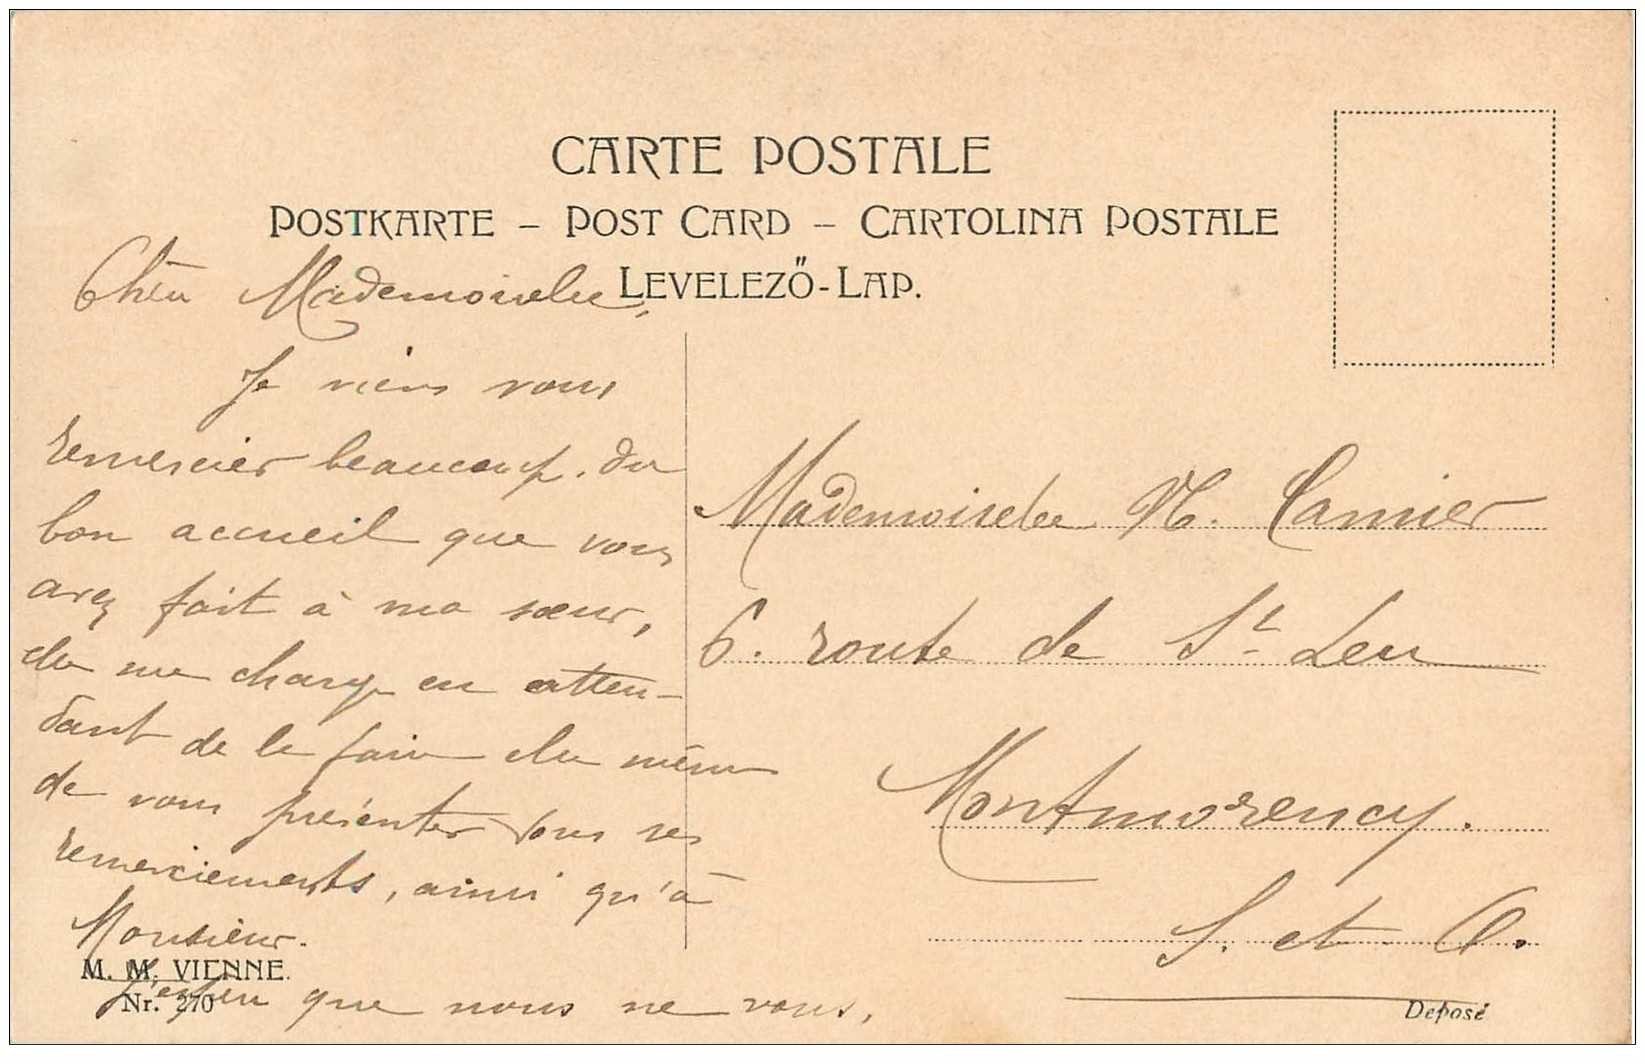 CARTE POSTALE
POSTKARTE – POST CARD – CARTOLINA POSTALE
LEVELEZŐ-LAP.
Chère Mademoiselle,
Je viens vous
remercier beaucoup du
bon accueil que vous
avez fait à ma sœur,
elle me charge en atten-
dant de le faire elle même
de vous présenter tous ses
remerciements, ainsi qu'à
Monsieur.
J'espère que nous ne vous,
Mademoiselle M.
6. route de St Leu
Montmorency.
S. et O.
M. M. VIENNE.
Nr. 270
Deposé